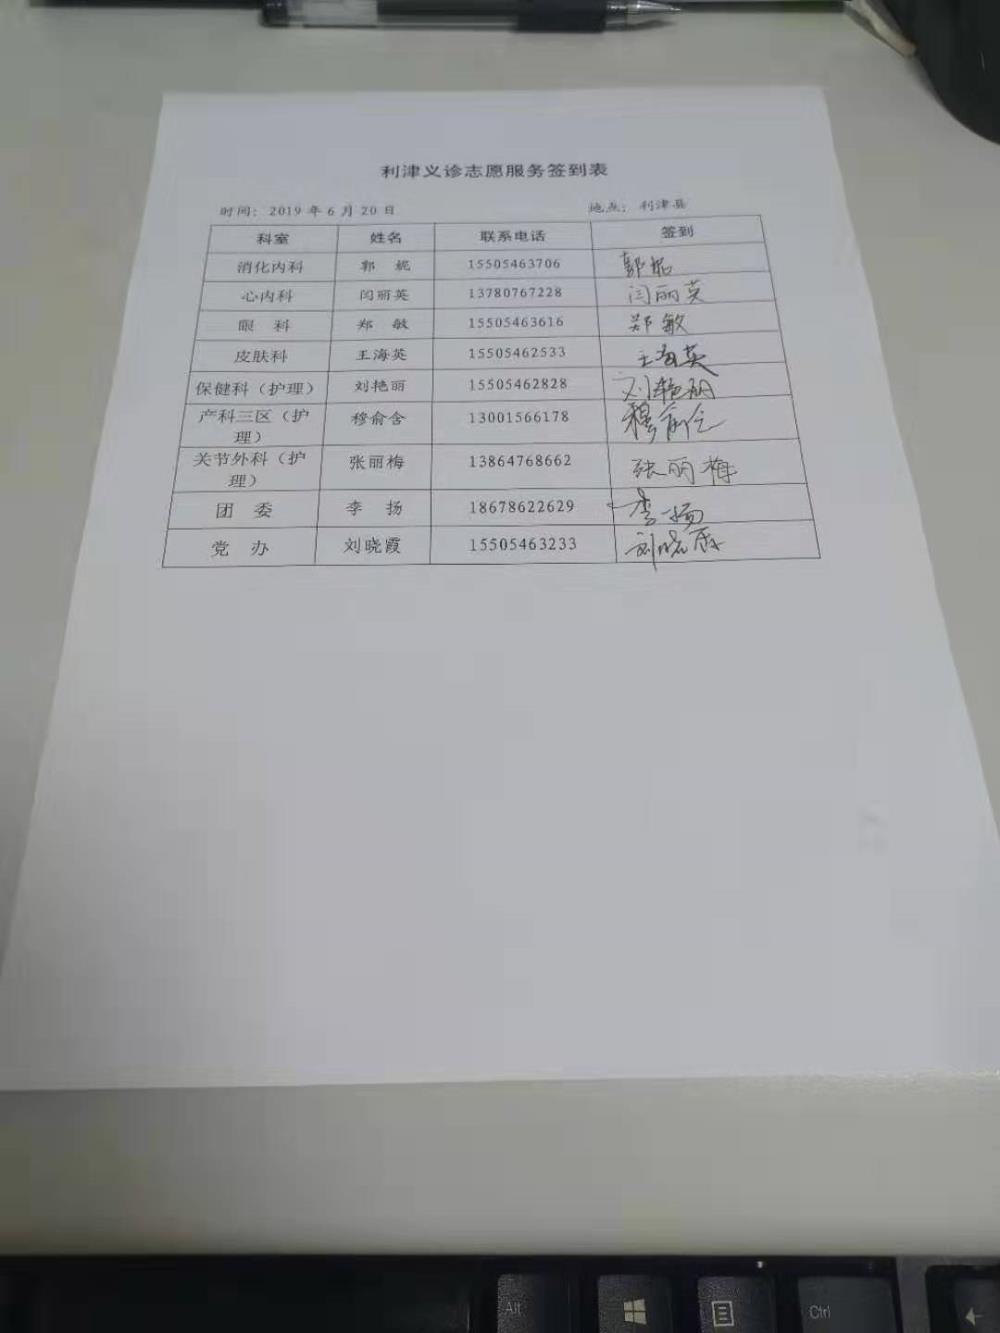 利津义诊志愿服务签到表
时间：2019年6月20日 地点：利津县
科室 姓名 联系电话 签到
消化内科 郭妮 15505463706 郭妮
心内科 闫丽英 13780767228 闫丽英
眼科 郑敏 15505463616 郑敏
皮肤科 王海英 15505462533 王海英
保健科（护理） 刘艳丽 15505462828 刘艳丽
产科三区（护
理） 穆俞含 13001566178 穆俞含
关节外科（护
理） 张丽梅 13864768662 张丽梅
团委 李扬 18678622629 李扬
党办 刘晓霞 15505463233 刘晓霞
Alt Ctrl